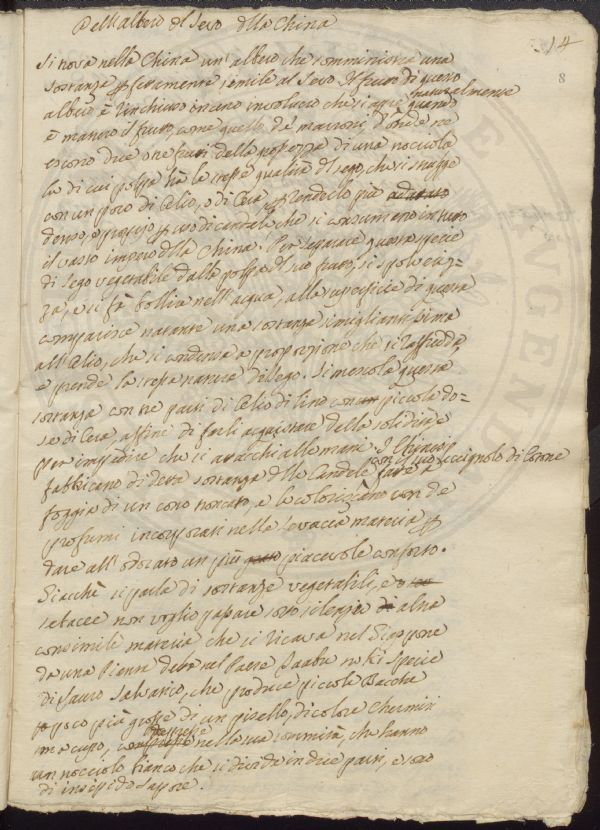 Dell'albero del Sevo della China
14
8
Si trova nella China un'albero che somministra una
sostanza perfettamente simile al Sevo. Il frutto di questo
albero è rinchiuso in un involucro che si apre naturalmente quando
è maturo il frutto, come quello de' marroni, d'onde ne
escono due o tre frutti della grossezza di una nocciola
la di cui polpa ha le stesse qualità del sego, che si strugge
con un poco di Olio, o di Cera per renderlo più
denso, e proprio per uso di candele che si consumano in tutto
il vasto impero della China. Per separare questa specie
di sego vegetabile dalla polpa del suo frutto, si spolveriz-
za, e si fà bollire nell'acqua, alla superficie di questa
comparisce natante una sostanza simigliantissima
all'Olio, che si condensa a proporzione che si raffredda,
e prende la stessa natura del sego. Si mescola questa
sostanza con tre parti di Olio di lino con piccola do-
se di Cera, affine di farli acquistare della solidità e
per impedire che si attacchi alle mani. I Chinesi
fabbricano di detta sostanza delle Candele con suo lucignolo di Cotone fatte a
foggia di un cono troncato, e le coloriscono con de
profumi incorporati nella sevacea materia per
dare all'odorato un più piacevole conforto.
Giacchè si parla di sostanze vegetabili, e
sebacee non voglio passare sotto silenzio altra
consimile materia che si ricava nel Giappone
da una Pianta detta nel Paese Saaba no ki specie
di Lauro Salvatico, che produce piccole Bacche
poco più grosse di un pisello, di colore Chermisi
ma cupo, compresse nella sua sommità, che hanno
un nocciolo bianco che si divide in due parti, e sono
di insipido sapore.